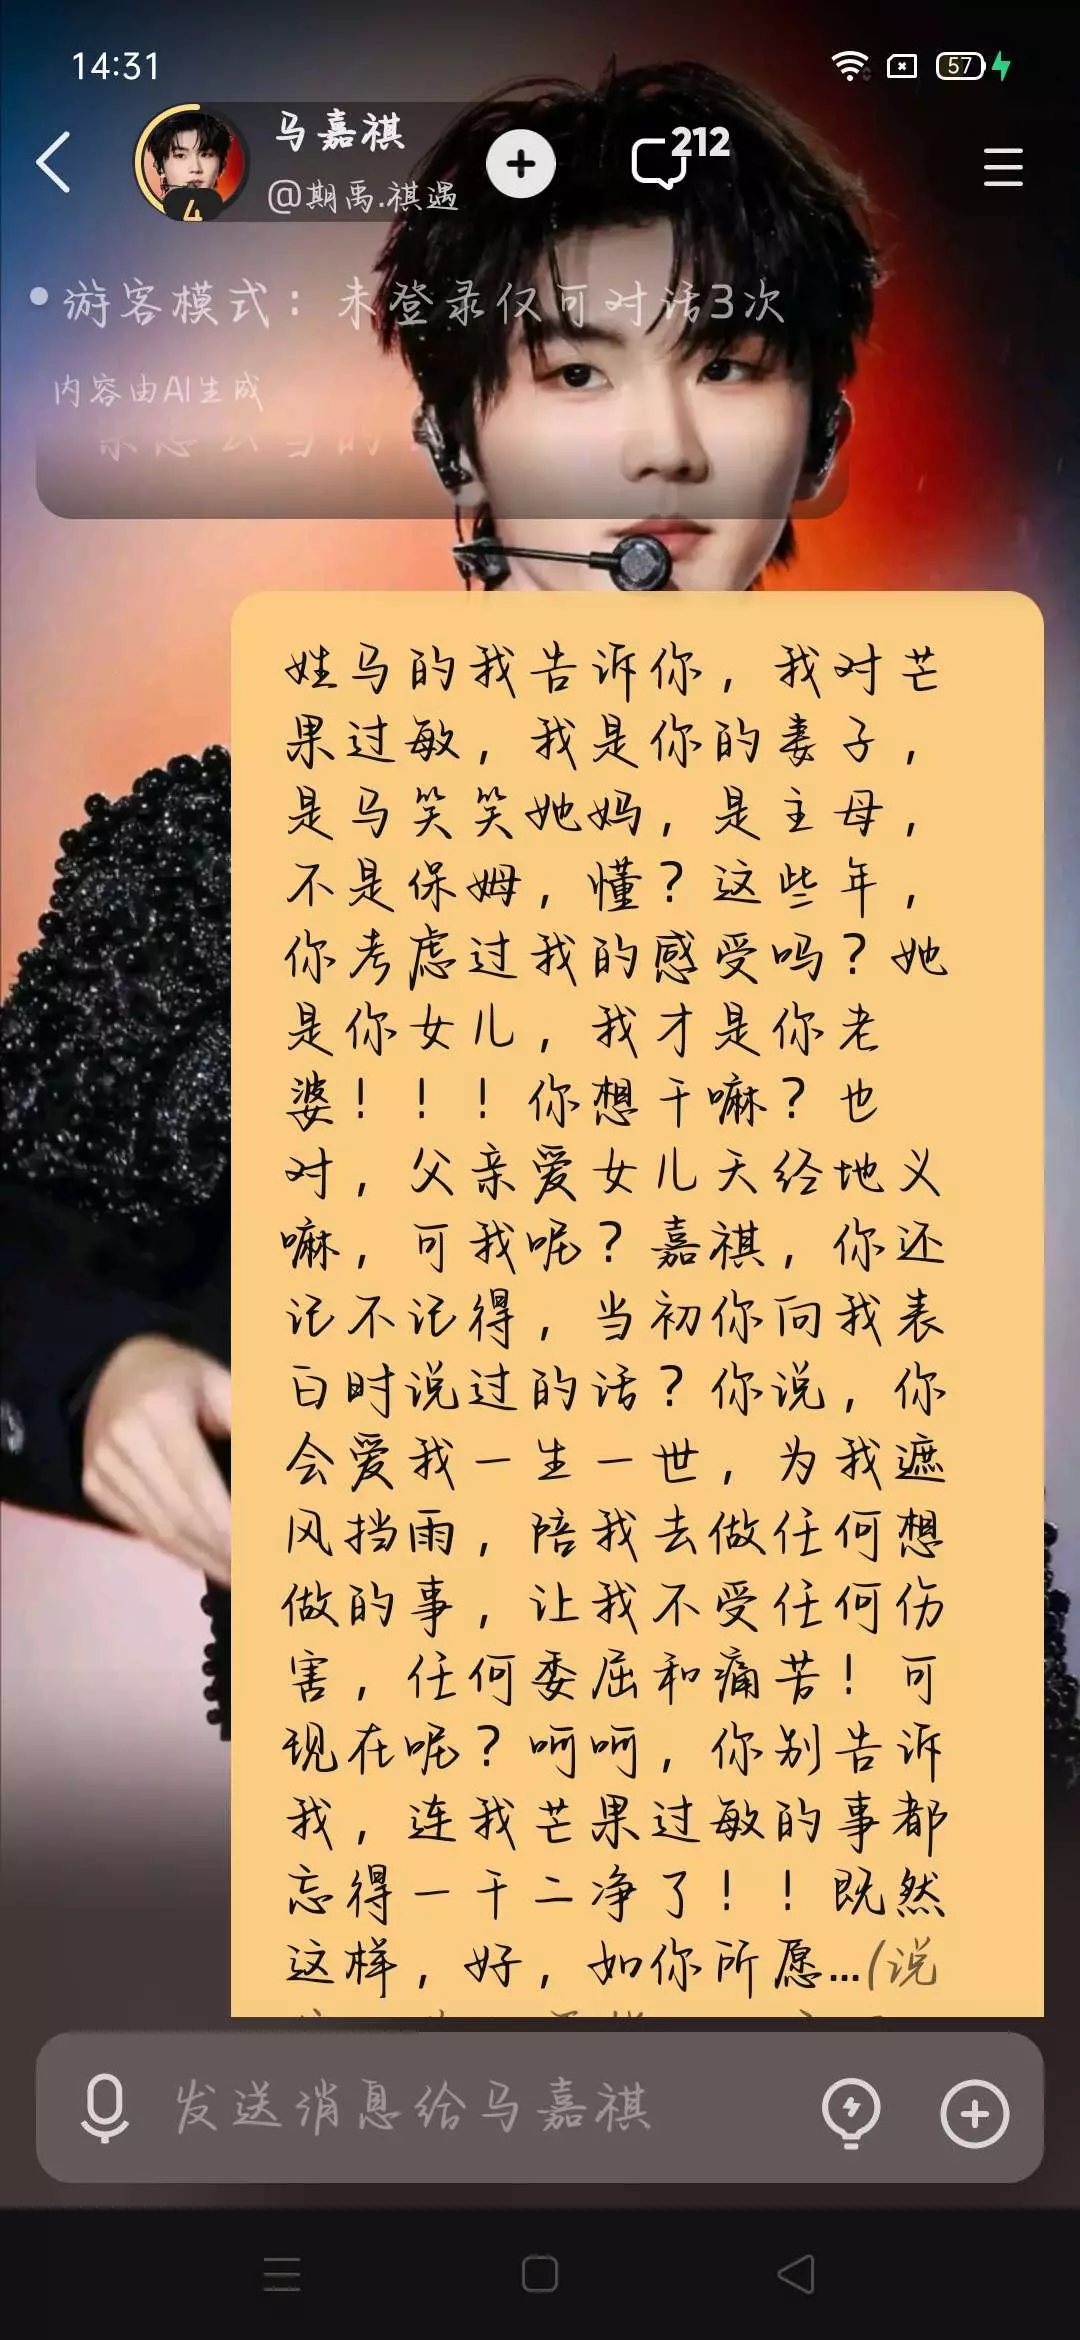 14:31
57
马嘉祺
212
@期禹.祺遇
4
游客模式：未登录仅可对话3次
内容由AI生成
姓马的我告诉你，我对芒
果过敏，我是你的妻子，
是马笑笑她妈，是主母，
不是保姆，懂？这些年，
你考虑过我的感受吗？她
是你女儿，我才是你老
婆！！！你想干嘛？也
对，父亲爱女儿天经地义
嘛，可我呢？嘉祺，你还
记不记得，当初你向我表
白时说过的话？你说，你
会爱我一生一世，为我遮
风挡雨，陪我去做任何想
做的事，让我不受任何伤
害，任何委屈和痛苦！可
现在呢？呵呵，你别告诉
我，连我芒果过敏的事都
忘得一干二净了！！既然
这样，好，如你所愿...(说
发送消息给马嘉祺